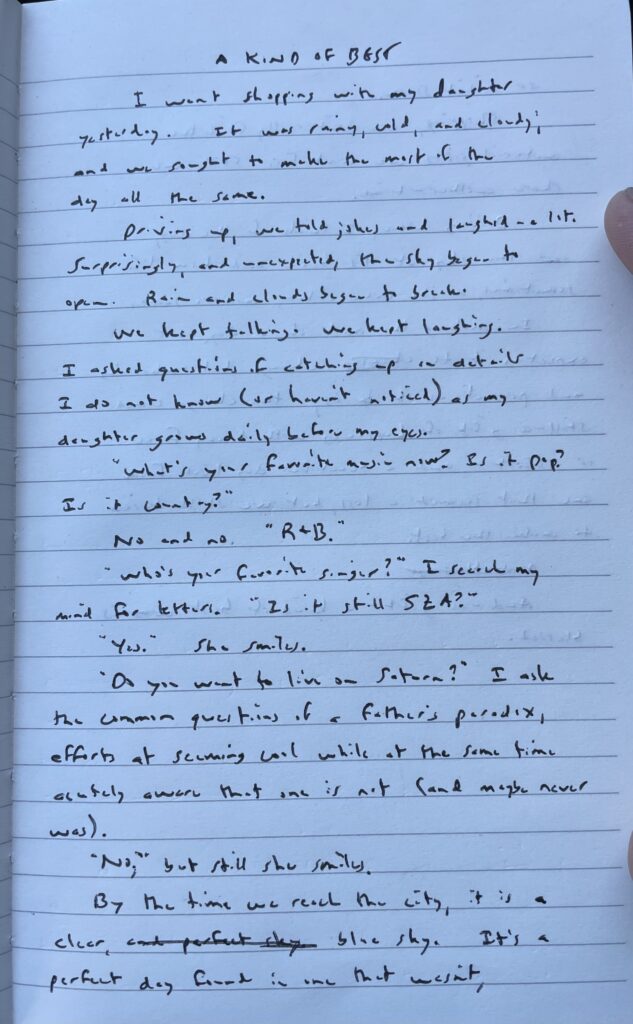 A KIND OF BEST
I went shopping with my daughter
yesterday. It was rainy, cold, and cloudy,
and we sought to make the most of the
day all the same.
Driving up, we told jokes and laughed a lot.
Surprisingly, and unexpected, the sky began to
open. Rain and clouds began to break.
We kept talking. We kept laughing.
I asked questions of catching up on details
I do not know (or haven't noticed) as my
daughter grows daily before my eyes.
"What's your favorite music now? Is it pop?
Is it country?"
No and no. "R+B."
"Who's your favorite singer?" I search my
mind for letters. "Is it still SZA?"
"Yes." She smiles.
"Do you want to live on Saturn?" I ask
the common questions of a father's paradox,
efforts at seeming cool while at the same time
acutely aware that one is not (and maybe never
was).
"No," but still she smiles.
By the time we reach the city, it is a
clear, and perfect sky blue sky. It's a
perfect day found in one that wasn't,